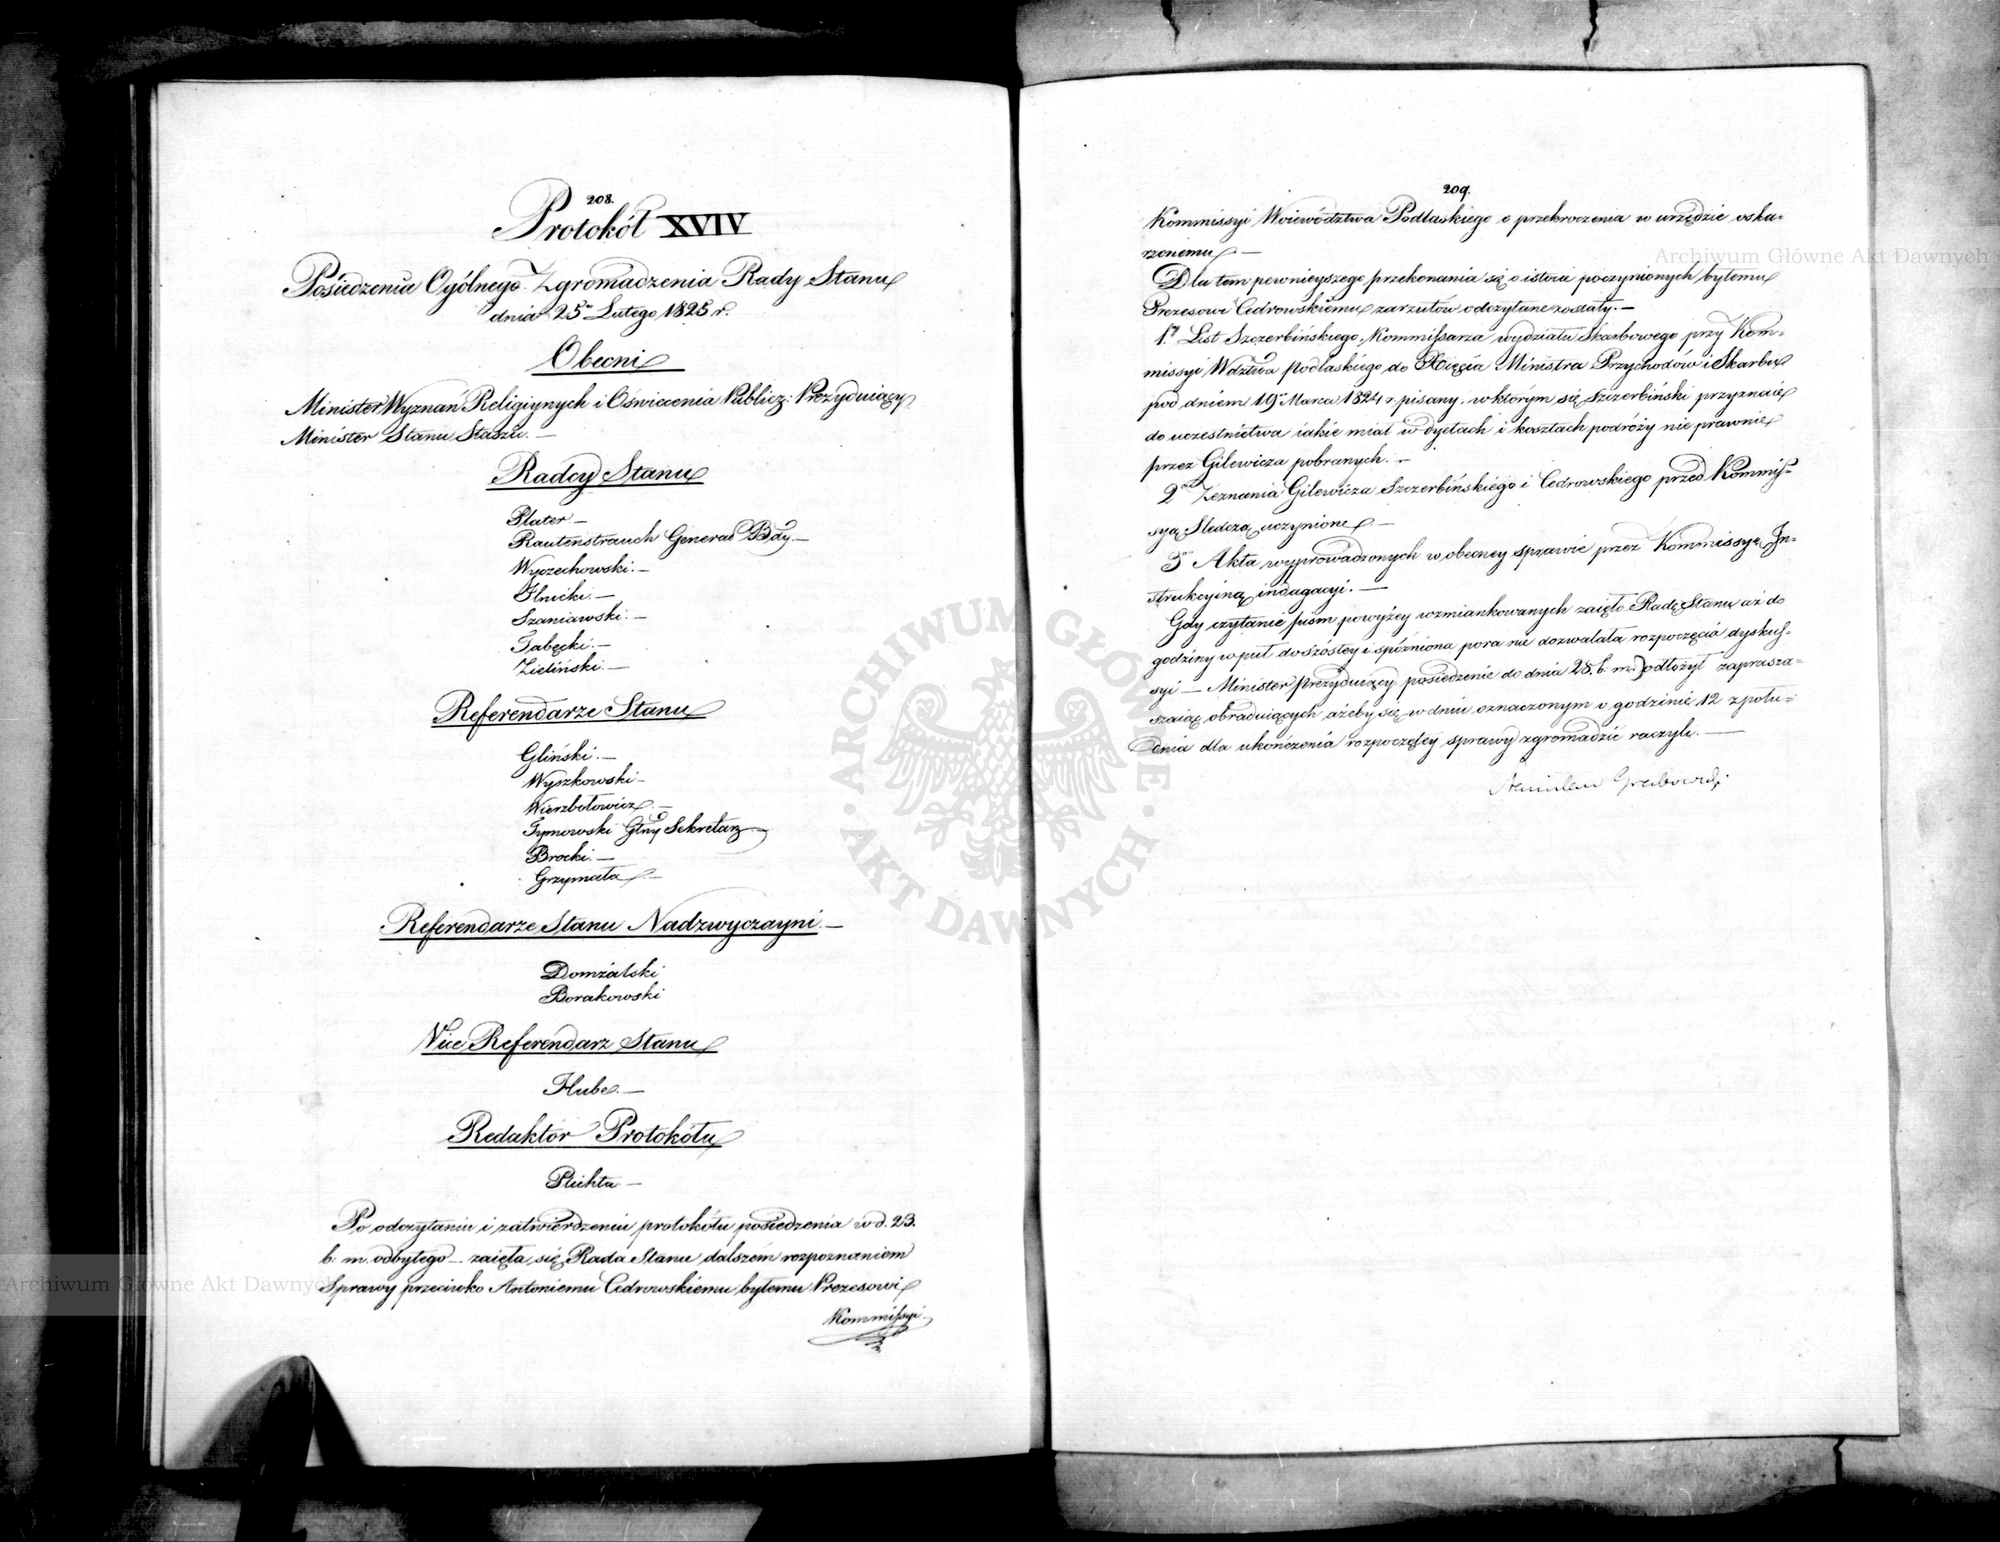 208.
Protokół XVIV
Posiedzenia Ogólnego Zgromadzenia Rady Stanu
dnia 25º Lutego 1825 r.
Obecni
Minister Wyznań Religiynych i Oświecenia Publicz: Prezyduiący
Minister Stanu Staszic. —
Radcy Stanu
Plater —
Rautenstrauch Generał Bdy. —
Wyczechowski. —
Ilnicki. —
Szaniawski. —
Tabęcki. —
Zieliński. —
Referendarze Stanu
Gliński. —
Wyszkowski —
Wierzbołowicz. —
Tymowski Głny Sekretarz —
Brocki. —
Grzymała —
Referendarze Stanu Nadzwyczayni. —
Domżalski
Borakowski
Vice Referendarz Stanu
Hube. —
Redaktór Protokółu
Plichta —
Po odczytaniu i zatwierdzeniu protokółu posiedzenia w d. 23.
b. m. odbytego — zaięła się Rada Stanu dalszém rozpoznaniem
Sprawy przeciwko Antoniemu Cedrowskiemu byłemu Prezesowi
Kommissyi
209.
Kommissyi Woiewództwa Podlaskiego o przekroczenia w urzędzie oska-
rzonemu. —
Dla tem pewnieyszego przekonania się o istocie poczynionych byłemu
Prezesowi Cedrowskiemu zarzutów odczytane zostały. —
1º List Szczerbińskiego, Kommissarza wydziału Skarbowego przy Kom-
missyi Wdztwa Podlaskiego do Xięcia Ministra Przychodów i Skarbu
pod dniem 19º Marca 1824 r. pisany, w którym się Szczerbiński przyznaie
do uczestnictwa iakie miał w dyetach i kosztach podróży nie prawnie
przez Gilewicza pobranych. —
2º Zeznania Gilewicza Szczerbińskiego i Cedrowskiego przed Kommis-
syą Śledczą uczynione —
3º Akta wyprowadzonych w obecney sprawie przez Kommissyę In-
strukcyiną indagacyi. —
Gdy czytanie pism powyżey wzmiankowanych zaięło Radę Stanu aż do
godziny w puł do szóstey i spóźniona pora nie dozwalała rozpoczęcia dyskus-
syi — Minister Prezyduiący posiedzenie do dnia 28. b. m. odłożył zaprasza-
szaiąc obraduiących ażeby się w dniu oznaczonym o godzinie 12 z połu-
dnia dla ukończenia rozpoczętey sprawy zgromadzić raczyli. —
Stanisław Grabowski
Archiwum Główne Akt Dawnych
Archiwum Główne Akt Dawnych
ARCHIWUM GŁÓWNE · AKT DAWNYCH ·